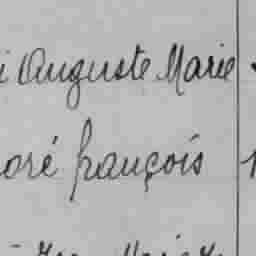 i Auguste Marie
oré françois